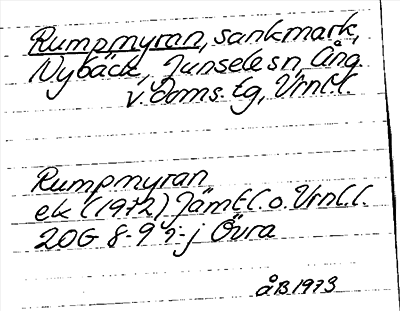 Rumpmyran, sankmark,
Nybäck, Junsele sn, Ång
v. Doms. tg, Vrnl. l.
Rumpmyran
ek (1972) Jämtl. o. Vrnl. l.
20G 8-9 i-j Övra
åB 1973